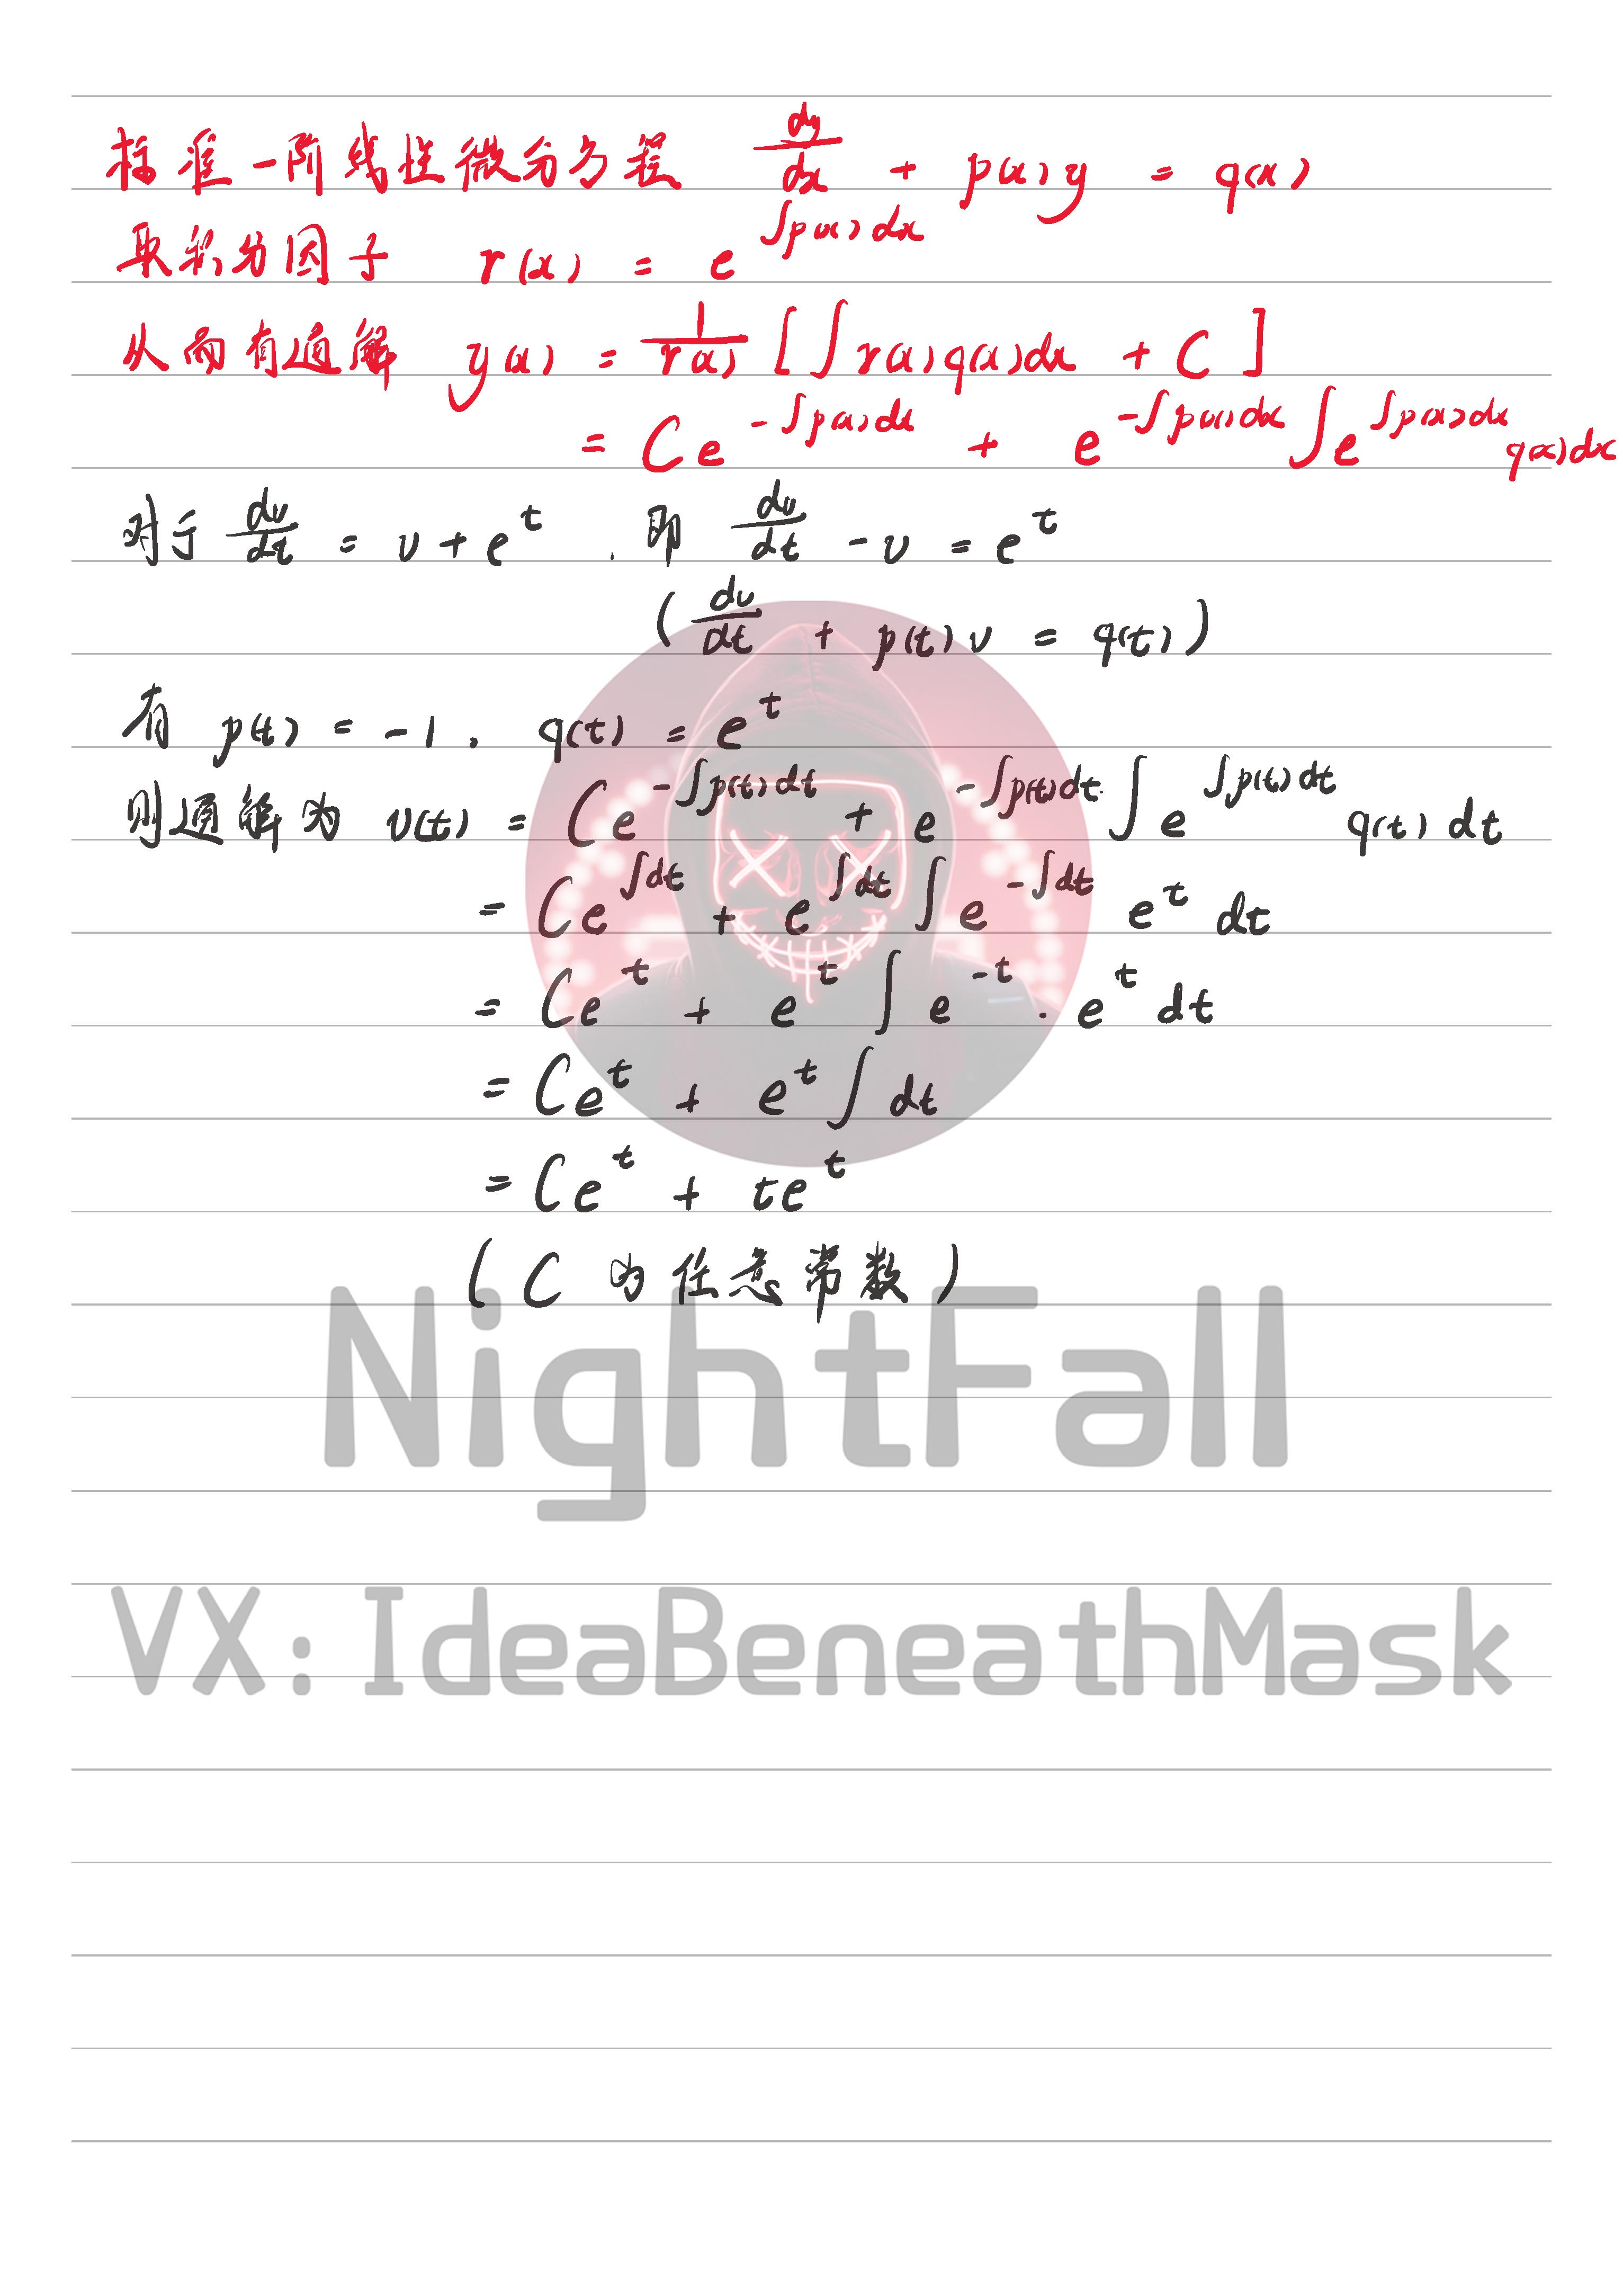 标准一阶线性微分方程 dy/dx + p(x)y = q(x)
取积分因子 r(x) = e^{∫p(x)dx}
从而有通解 y(x) = 1/r(x) [∫r(x)q(x)dx + C]
= Ce^{-∫p(x)dx} + e^{-∫p(x)dx} ∫e^{∫p(x)dx} q(x)dx
对于 dv/dt = v + e^t . 即 dv/dt - v = e^t
(dv/dt + p(t)v = q(t))
有 p(t) = -1 , q(t) = e^t
则通解为 v(t) = Ce^{-∫p(t)dt} + e^{-∫p(t)dt} ∫e^{∫p(t)dt} q(t) dt
= Ce^{∫dt} + e^{∫dt} ∫e^{-∫dt} e^t dt
= Ce^t + e^t ∫e^{-t} · e^t dt
= Ce^t + e^t ∫dt
= Ce^t + te^t
(C 为任意常数)
NightFall
VX: IdeaBeneathMask